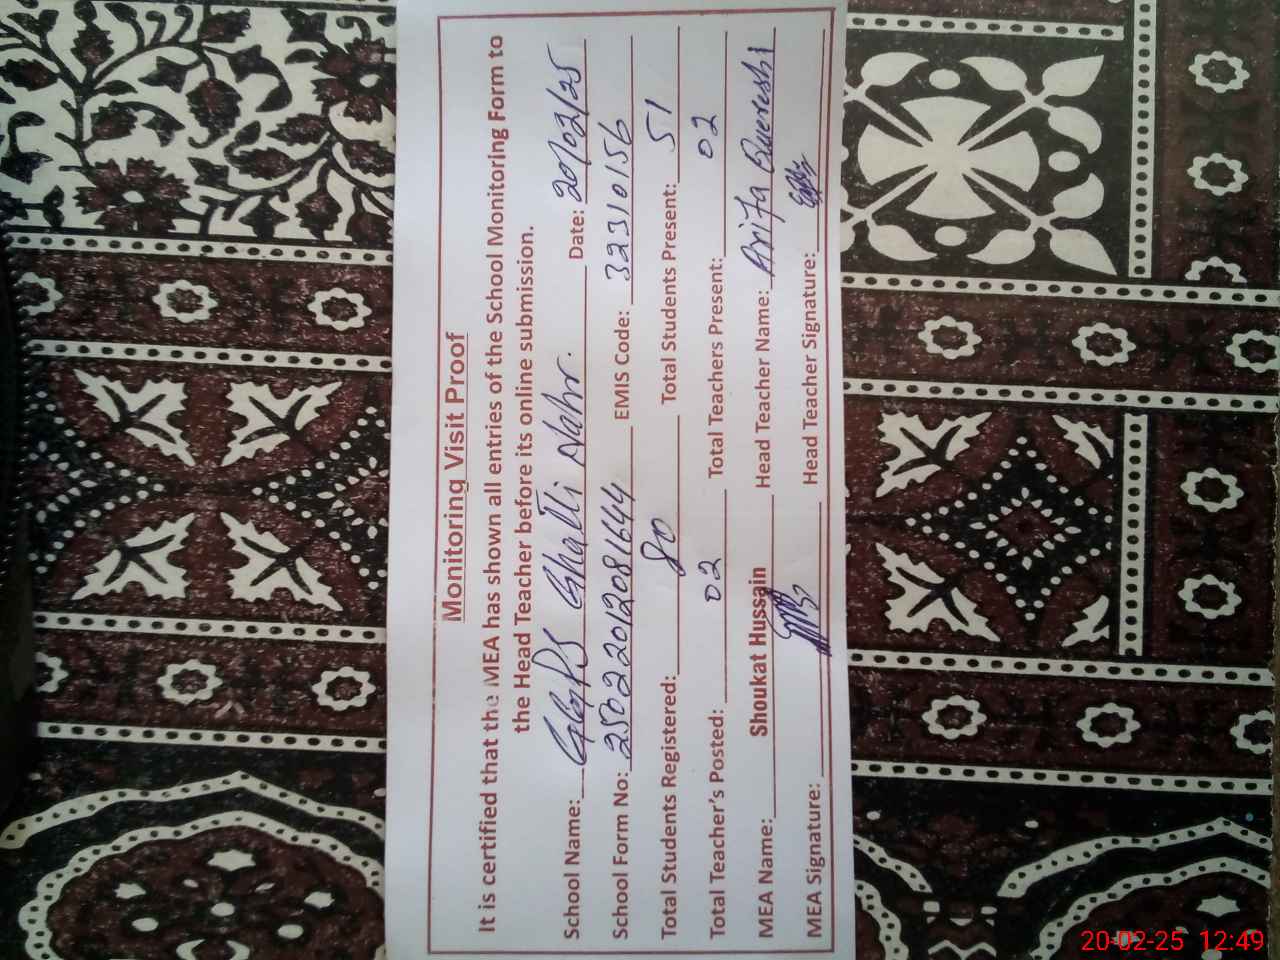 Monitoring Visit Proof
It is certified that the MEA has shown all entries of the School Monitoring Form to
the Head Teacher before its online submission.
School Name: Ghatti Nahr. Date: 20/02/25
School Form No: 25022012081644 EMIS Code: 32310156
Total Students Registered: 80 Total Students Present: 51
Total Teacher's Posted: 02 Total Teachers Present: 02
MEA Name: Shoukat Hussain Head Teacher Name: Arifa Quereshi
MEA Signature: Head Teacher Signature:
20-02-25 12:49